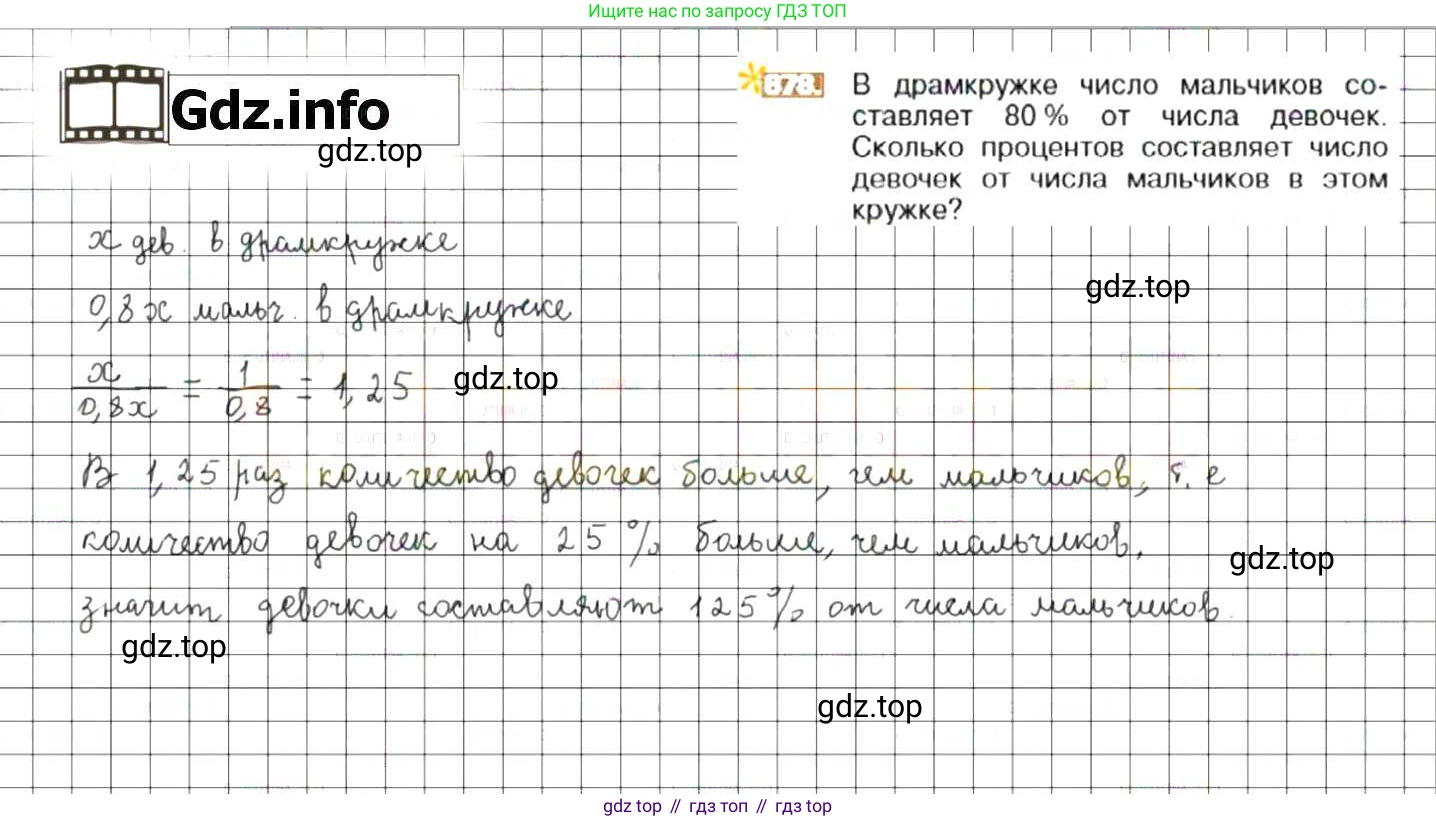 Ищите нас по запросу ГДЗ ТОП
Gdz.info
gdz.top
878.
В драмкружке число мальчиков со-
ставляет 80 % от числа девочек.
Сколько процентов составляет число
девочек от числа мальчиков в этом
кружке?
x дев. в драмкружке
gdz.top
0,8x мальч. в драмкружке
x/0,8x = 1/0,8 = 1,25
gdz.top
В 1,25 раз количество девочек больше, чем мальчиков, т.е
количество девочек на 25 % больше, чем мальчиков,
gdz.top
значит девочки составляют 125% от числа мальчиков.
gdz.top
gdz.top
gdz top // гдз топ // гдз top